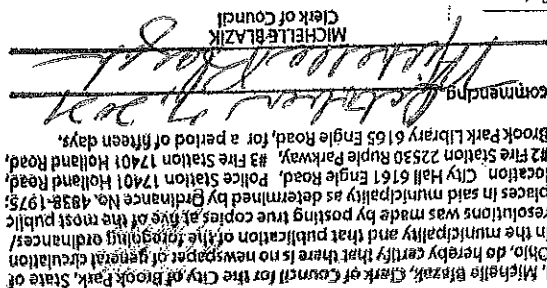 , Michelle Blazak, Clerk of Council for the City of Brook Park, State of
Ohio, do hereby certify that there is no newspaper of general circulation
in the municipality and that publication of the foregoing ordinances/
resolutions was made by posting true copies at five of the most public
places in said municipality as determined by Ordinance No. 4838-1975;
location City Hall 6161 Engle Road, Police Station 17401 Holland Road,
#2 Fire Station 22530 Ruple Parkway, #3 Fire Station 17401 Holland Road,
Brook Park Library 6165 Engle Road, for a period of fifteen days.
commencing October 2021
Michelle Blazik
MICHELLE BLAZIK
Clerk of Council